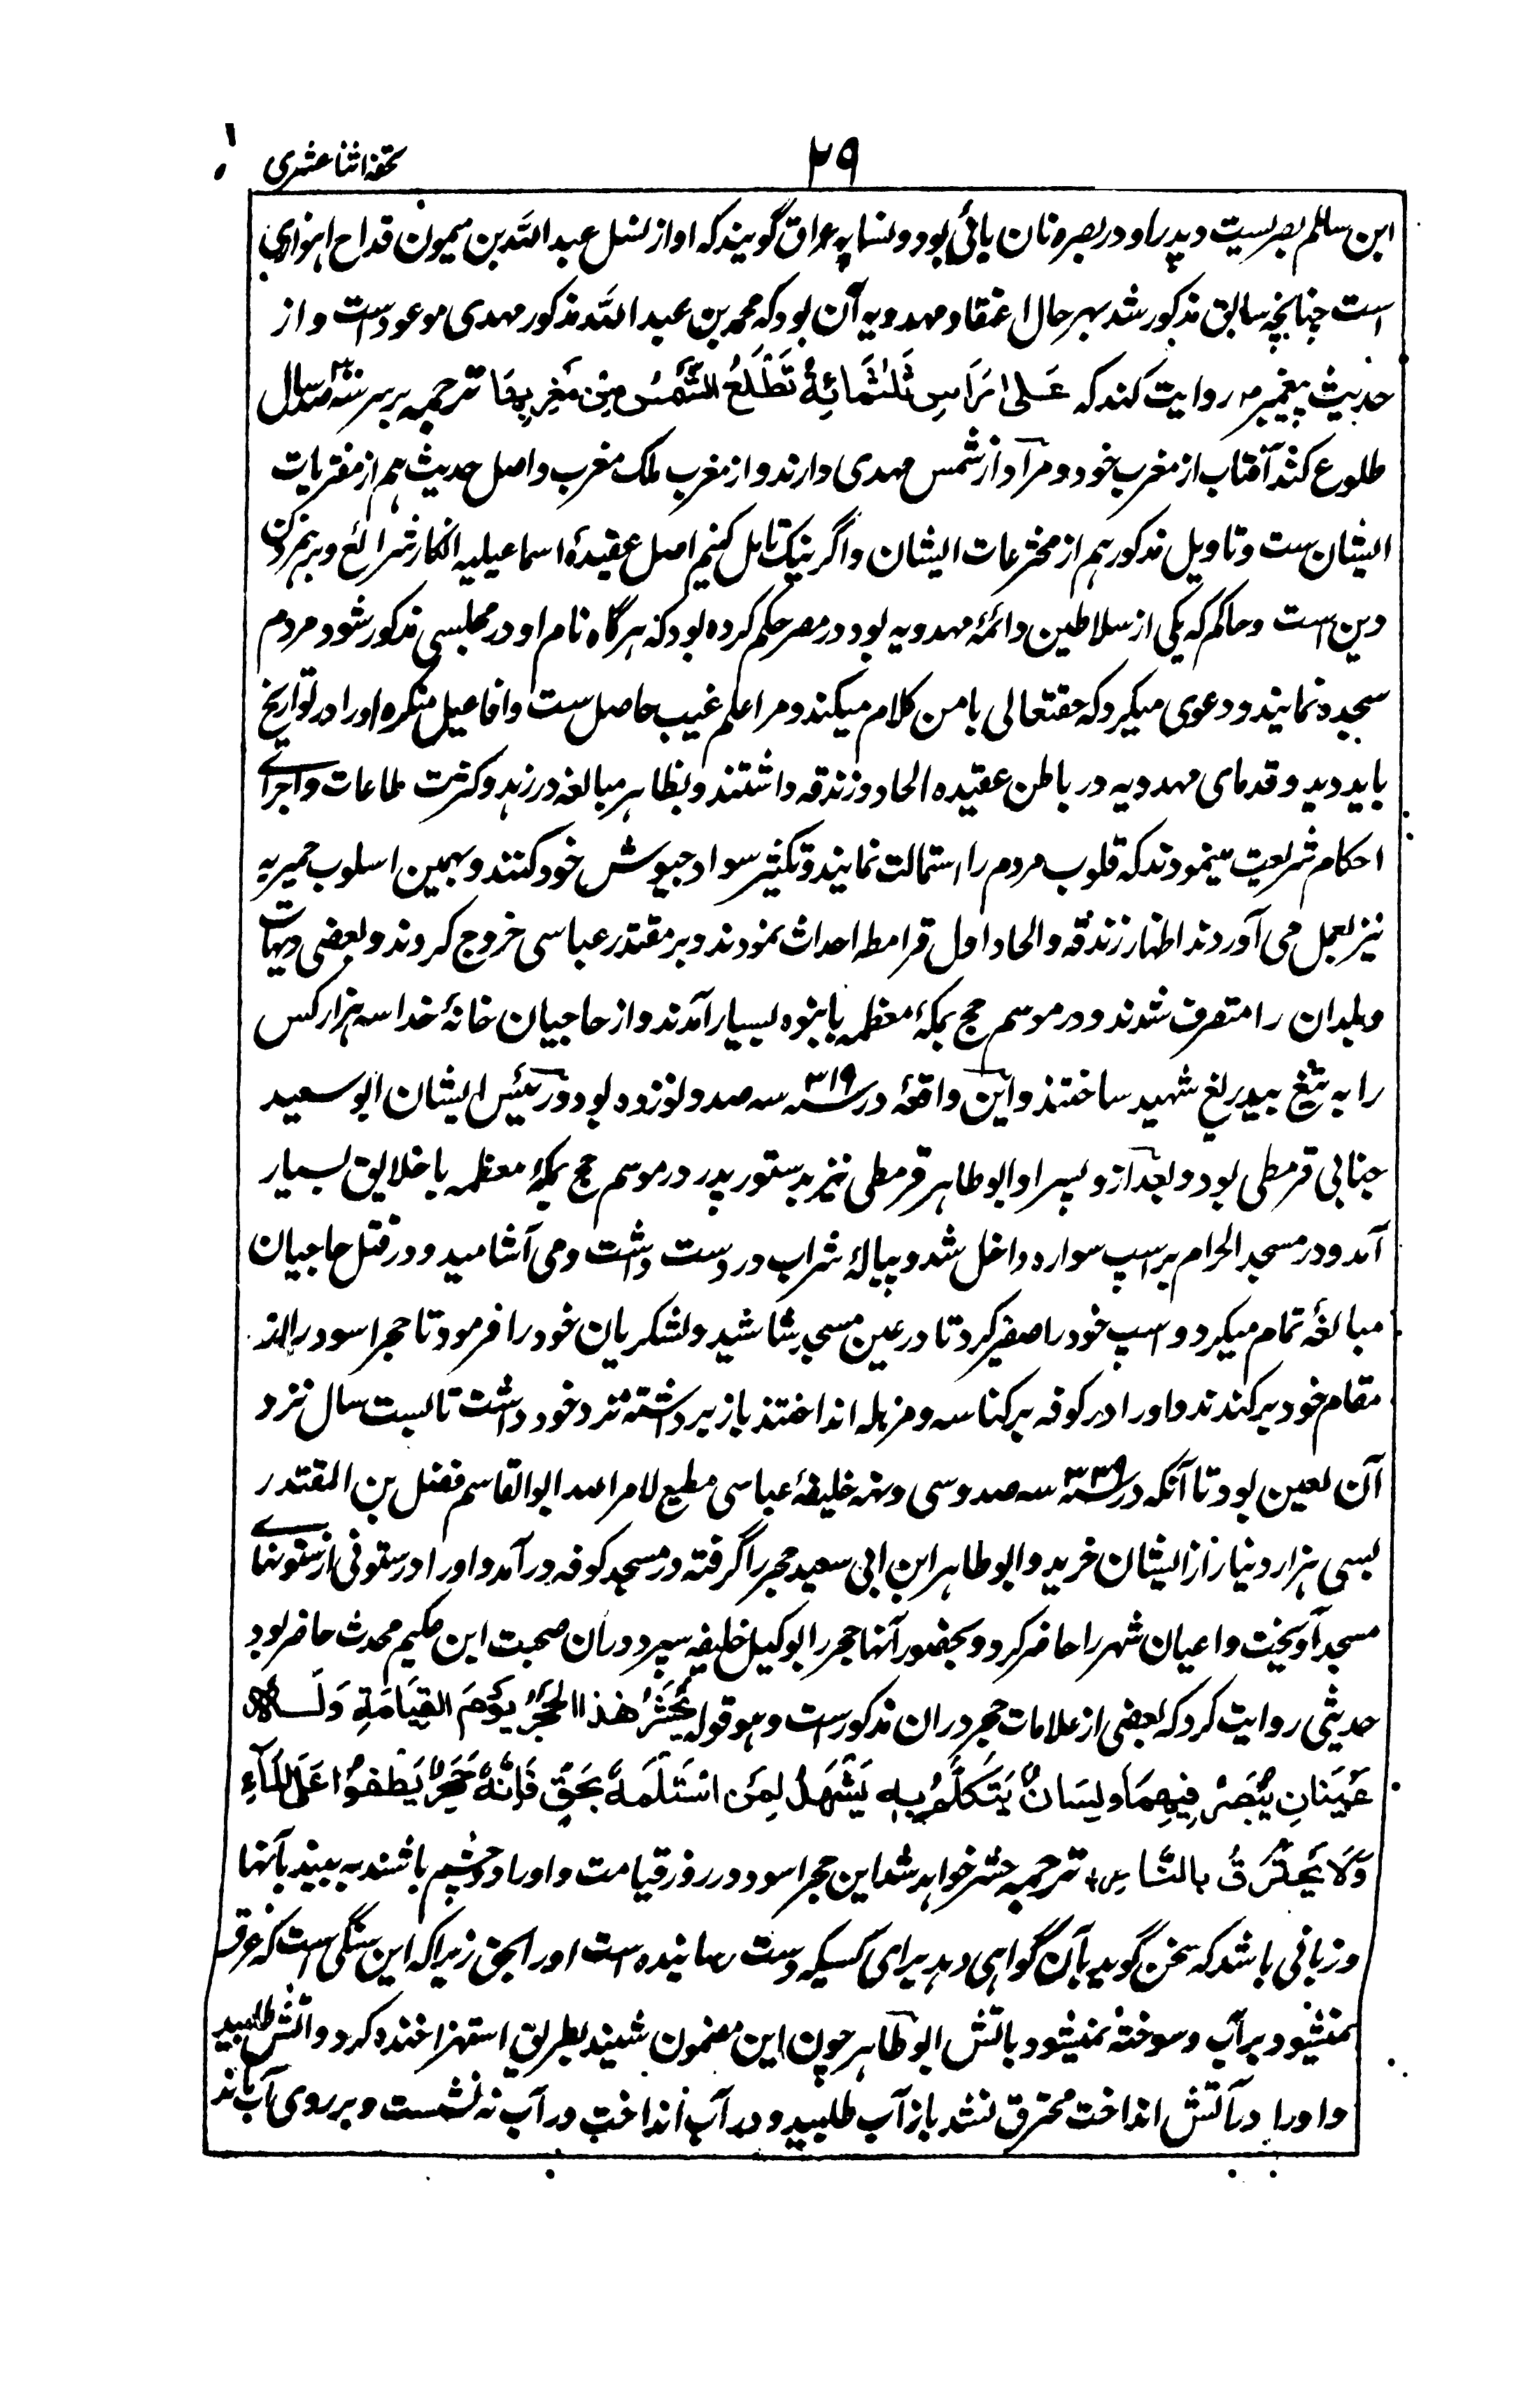 ۲۹
تحفه اثنا عشری
ابن سالم بصریست و پدر او در بصره نان بائی بود و نسابه عراق گویند که او از نسل عبد الله بن میمون قداح اهوازی
است چنانچه سابق مذکور شد بهر حال اعتقاد مهدویه آن بود که محمد بن عبد الله مذکور مهدی موعود است و از
حدیث پیغمبر ص روایت کنند که عَلیٰ رَاسِ ثَلٰثَمائِةٍ تَطْلَعُ الشَّمْسُ مِنْ مَغْرِبِهَا ترجمه بر سر سه صد سال
طلوع کند آفتاب از مغرب خود و مراد از شمس مهدی دارند و از مغرب ملک مغرب و اصل حدیث هم از مفتریات
ایشان ست و تاویل مذکور هم از مخترعات ایشان و اگر نیک تامل کنیم اصل عقیدۀ اسماعیلیه انکار شرائع و بر همزدن
دین است و حاکم که یکی از سلاطین و ائمۀ مهدویه بود در مصر حکم کرده بود که هر گاه نام او در مجلسی مذکور شود مردم
سجده نمایند و دعوی میکرد که حقتعالی با من کلام میکند و مرا علم غیب حاصل ست و افاعیل منکره او را در تواریخ
باید دید و قدمای مهدویه در باطن عقیده الحاد و زندقه داشتند و بظاهر مبالغه در زهد و کثرت طاعات و اجرای
احکام شریعت مینمودند که قلوب مردم را استمالت نمایند و تکثیر سواد جیوش خود کنند و بهمین اسلوب حمیریه
نیز بعمل می آوردند اظهار زندقه و الحاد اول قرامطه احداث نمودند و بر مقتدر عباسی خروج کردند و بعضی دیهات
و بلدان را متصرف شدند و در موسم حج بمکۀ معظمه بانبوه بسیار آمدند و از حاجیان خانۀ خدا سه هزار کس
را به تیغ بیدریغ شهید ساختند و این واقعۀ در سنه ۳۱۹ سه صد و نوزده بود و رئیس ایشان ابو سعید
جنابی قرمطی بود و بعد از و پسر او ابو طاهر قرمطی نیز بدستور پدر در موسم حج بمکۀ معظمه با خلایق بسیار
آمد و در مسجد الحرام بر اسپ سواره داخل شد و پیالۀ شراب در دست داشت و می آشامید و در قتل حاجیان
مبالغۀ تمام میکرد و اسپ خود را صفیر کرد تا در عین مسجد بشاشید و لشکریان خود را فرمود تا حجر اسود را از
مقام خود بر کندند و او را در کوفه بر کناسه و مزبله انداختند باز برداشته نزد خود داشت تا بست سال نزد
آن لعین بود تا آنکه در سنه ۳۳۹ سه صد و سی و نه خلیفۀ عباسی مطیع لامر الله ابو القاسم فضل بن المقتدر
بسی هزار دینار از ایشان خرید و ابو طاهر ابن ابی سعید حجر را گرفته در مسجد کوفه در آمد و او را در ستونی از ستونهای
مسجد آویخت و اعیان شهر را حاضر کرد و بحضور آنها حجر را بوکیل خلیفه سپرد در ان صحبت ابن حکیم محدث حاضر بود
حدیثی روایت کرد که بعضی از علامات حجر در ان مذکور ست و هو قوله یُحْشَرُ هٰذَا الحَجَرُ یَوْمَ القِیَامَةِ وَلَهُ
عَیْنَانِ یُبْصِرُ فِیهِمَا وَلِسَانٌ یَتَکَلَّمُ بِهِ یَشْهَدُ لِمَنِ اسْتَلَمَهُ بِحَقٍّ فَاِنَّهُ حَجَرٌ یَطْفُوْا عَلَی المَآءِ
وَلَا یَحْتَرِقُ بِالنَّارِ ترجمه حشر خواهد شد این حجر اسود در روز قیامت و او را دو چشم باشند به بیند بآنها
و زبانی باشد که سخن گوید بآن گواهی دهد برای کسیکه دست رسانیده است او را بحق زیرا که این سنگی است که غرق
نمیشود بر آب و سوخته نمیشود باتش ابو طاهر چون این مضمون شنید بطریق استهزا خنده کرد و آتش طلبید
و او را در آتش انداخت محترق نشد باز آب طلبید و در آب انداخت در آب نه نشست و بر روی آب ماند